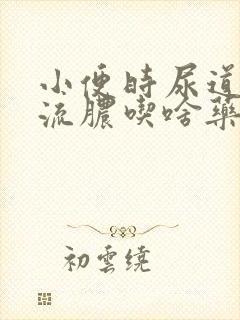 小便时尿道
流膿喫啥藥
初雲繞